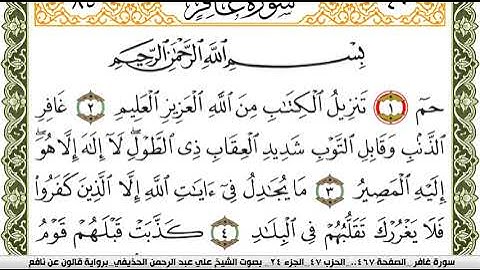 ٨٥ سورة غافر ٤٠
بِسْمِ اللَّهِ الرَّحْمَٰنِ الرَّحِيمِ
حمٓ ١ تَنزِيلُ الْكِتَٰبِ مِنَ اللَّهِ الْعَزِيزِ الْعَلِيمِ ٢ غَافِرِ
الذَّنۢبِ وَقَابِلِ التَّوْبِ شَدِيدِ الْعِقَابِ ذِى الطَّوْلِۖ لَآ إِلَٰهَ إِلَّا هُوَۖ
إِلَيْهِ الْمَصِيرُ ٣ مَا يُجَٰدِلُ فِىٓ ءَايَٰتِ اللَّهِ إِلَّا الَّذِينَ كَفَرُوا
فَلَا يَغْرُرْكَ تَقَلُّبُهُمْ فِى الْبِلَٰدِ ٤ كَذَّبَتْ قَبْلَهُمْ قَوْمُ
سورة غافر_الصفحة ٤٦٧.._ الحزب ٤٧_الجزء ٢٤_ بصوت الشيخ علي عبد الرحمن الحذيفي_ برواية قالون عن نافع